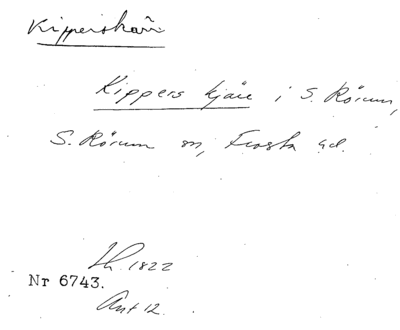 Kipperskärr
Kippers kjäre i S. Rörum,
S. Rörum sn, Frosta hd.
Lh. 1822
Nr 6743.
Ant 12.